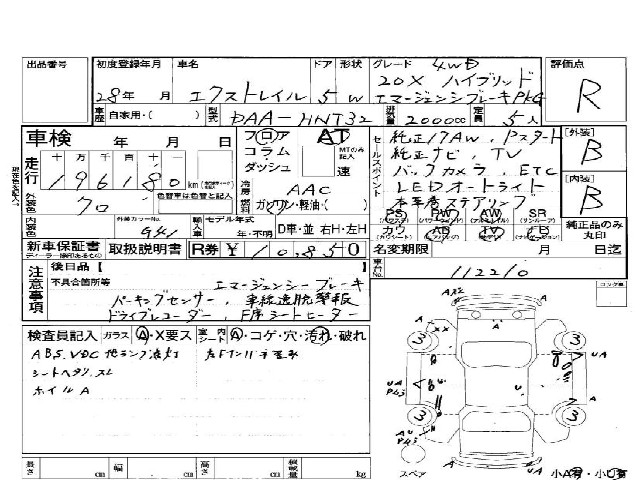 出品番号 初度登録年月 車名 ドア 形状 グレード 4WD 評価点
28年 月 エクストレイル 5 W 20X ハイブリッド
エマージェンシーブレーキPKG R
車歴 自家用・( ) 型式 DAA-HNT32 排気量 2000cc 定員 5人
車検 年 月 日 フロア AT
コラム MTのみ記入
ダッシュ 速
セールスポイント 純正17AW, Pスタート
純正ナビ, TV
バックカメラ, ETC
LEDオートライト
本革巻ステアリング
[外装] B
[内装] B
走行 十 万 千 百 十 一
196180 km
冷房 AAC
燃料 ガソリン・軽油・( )
外装色 70 色替車は色替と記入
内装色 外装カラーNo. G41 輸入車 モデル年式 年・不明 D車・並 右H・左H
PS PW AW SR
カワ AB TV FB
純正品のみ丸印
新車保証書 取扱説明書 R券 ¥10850
名変期限 月 日迄
車台No. 112210
注意事項 後日品【
不具合箇所等 エマージェンシーブレーキ
パーキングセンサー, 車線逸脱警報
ドライブレコーダー, F席シートヒーター
検査員記入 ガラス A・X要ス 室内シート A・コゲ・穴・汚れ・破れ
ABS, VDC他ランプ点灯
シートヘタリ, スレ
ホイルA
コック車
AX2 A
XX
3 3
UA P43 U A UA
3 3
AU P43 A
スペア 小A有・小U有
長さ cm 幅 cm 高さ cm 積載量 kg